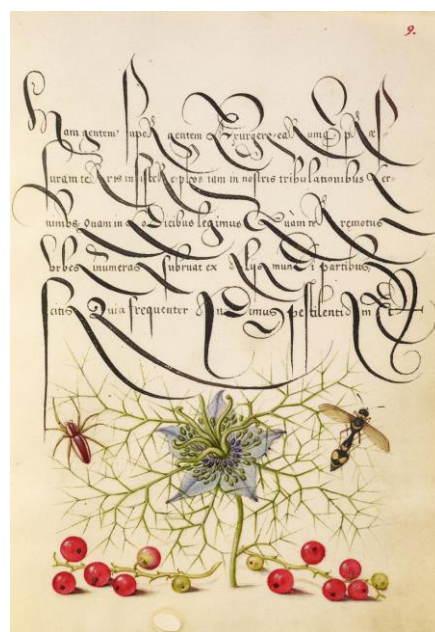 9.
Nam gentem super gentem Exurgere, ear
suram terris insistere plus iam in nostris tribulationibus cer-
nimus. Quam in Codicibus legimus. Quam terremotus
Urbes innumeras subruat ex alijs mundi partibus,
scitis Quia frequenter audivimus